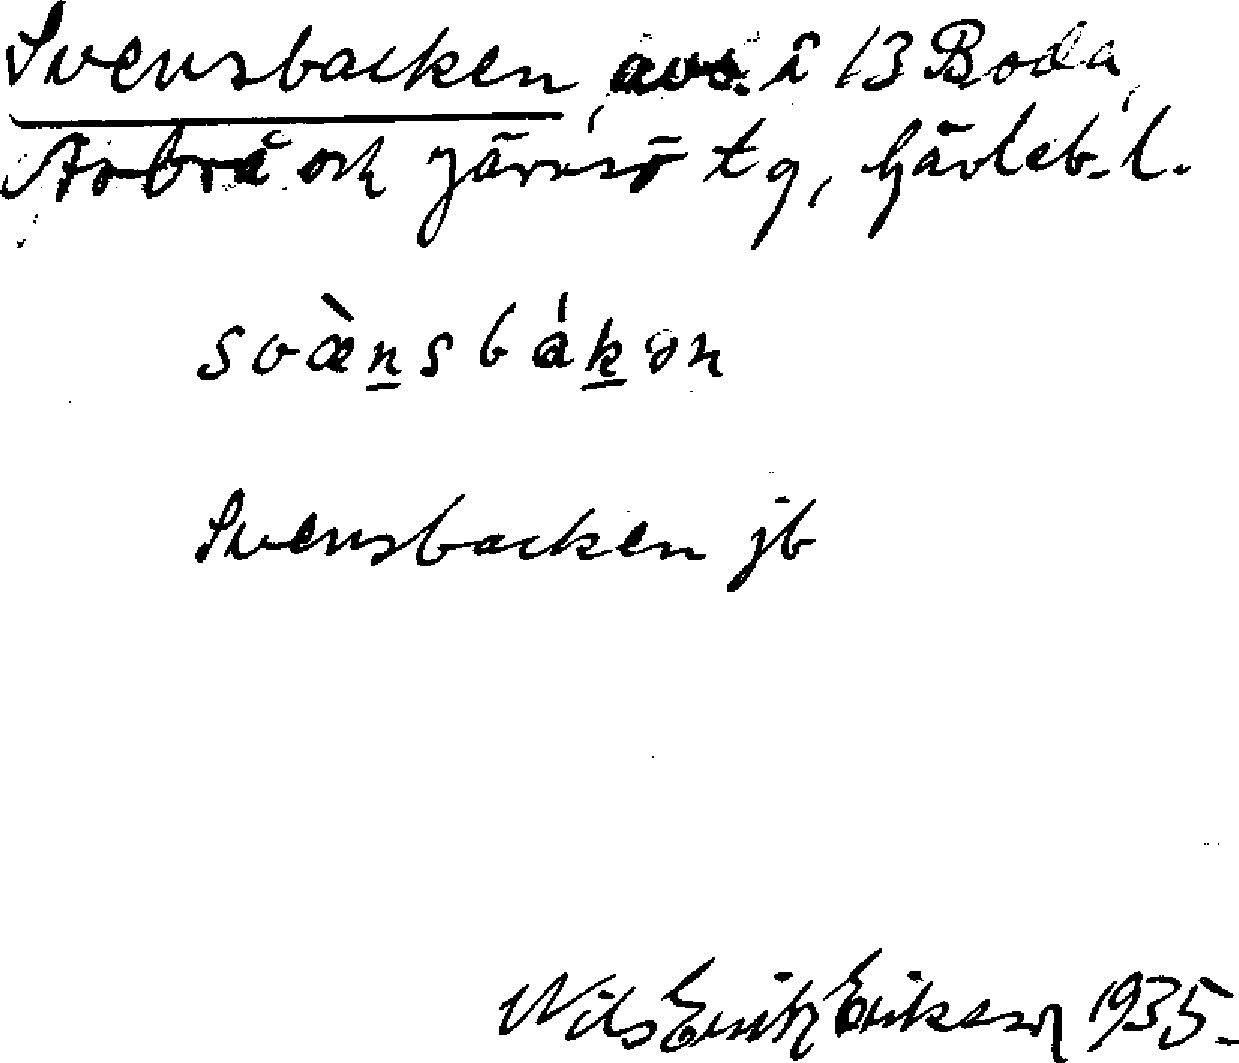 Svensbacken, avs. i 13 Boda,
Arbrå och Järvsö tg, Gävleb. l.
svæ̀nsbákən
Svensbacken jb
Nils Erik Eriksson 1935.